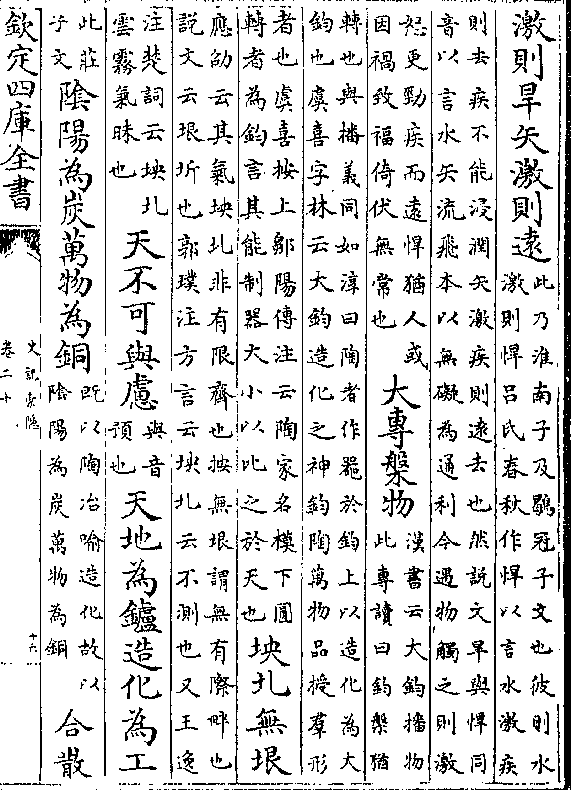 激則旱矢激則遠此乃淮南子及鶡冠子文也彼則水
激則悍呂氏春秋作悍以言水激疾
則去疾不能浸潤矢激疾則遠去也然說文旱與悍同
音以言水矢流飛本以無礙為通利今遇物觸之則激
怒更勁疾而遠悍猶人或
因禍致福倚伏無常也
大專槃物漢書云大鈞播物
此專讀曰鈞槃猶
轉也與播義同如淳曰陶者作器於鈞上以造化為大
鈞也虞喜字林云大鈞造化之神鈞陶萬物品授羣形
者也虞喜按上鄒陽傳注云陶家名模下圓
轉者為鈞言其能制器大小以比之於天也
坱圠無垠
應劭云其氣坱圠非有限齊也按無垠謂無有際畔也
說文云垠圻也郭璞注方言云坱圠云不測也又王逸
注楚詞云坱圠
雲霧氣昧也
天不可與慮與音
預也
天地為鑪造化為工
此莊
子文
陰陽為炭萬物為銅既以陶冶喻造化故以
陰陽為炭萬物為銅
合散
欽定四庫全書
史記索隱
卷二十
十六